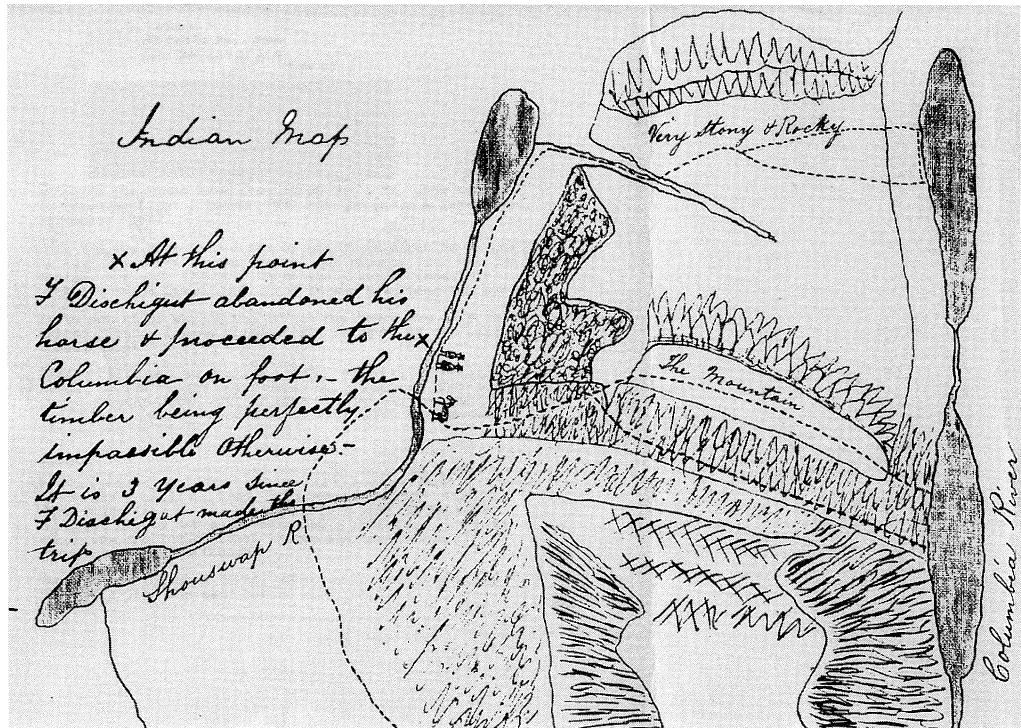 Indian Map
Very Stony & Rocky
x At this point
F Dischiqut abandoned his
horse & proceeded to the x
Columbia on foot, - the
timber being perfectly
impassible otherwise. -
It is 3 years since
F Dischiqut made the
trip
The Mountain
Shouswap R
Columbia River